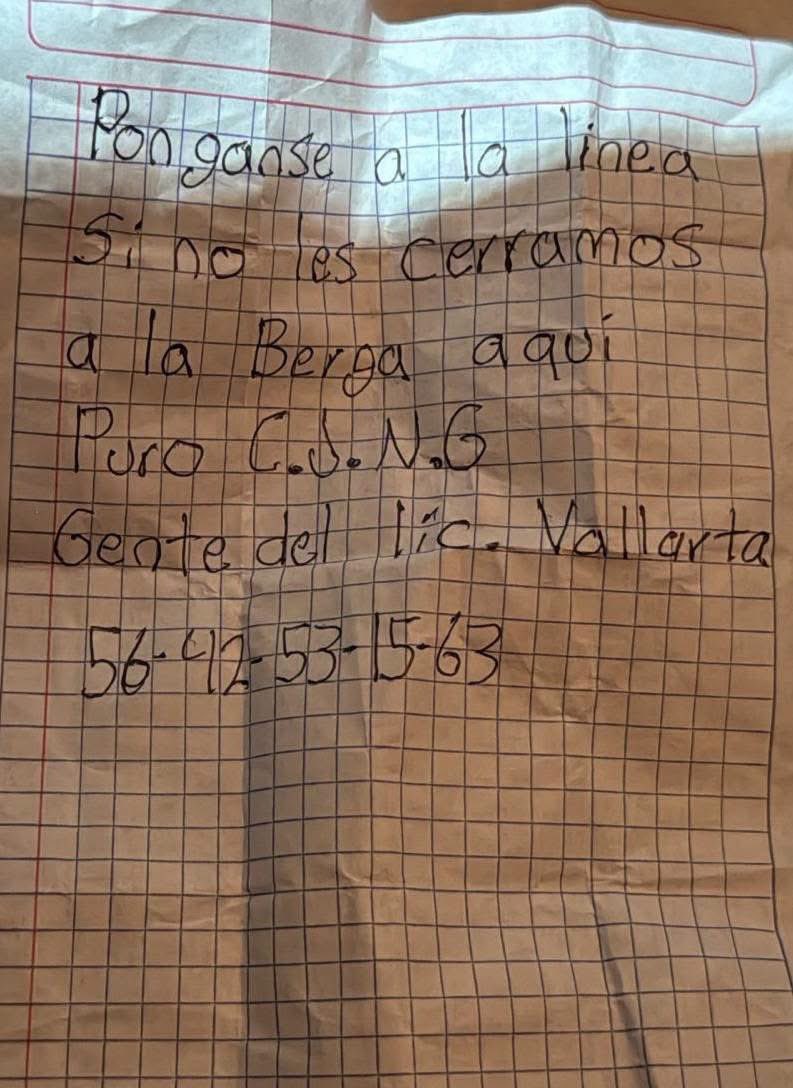 Ponganse a la linea
Si no les cerramos
a la Berga aqui
Puro C.J.N.G
Gente del lic. Vallarta
56-42-53-15-63